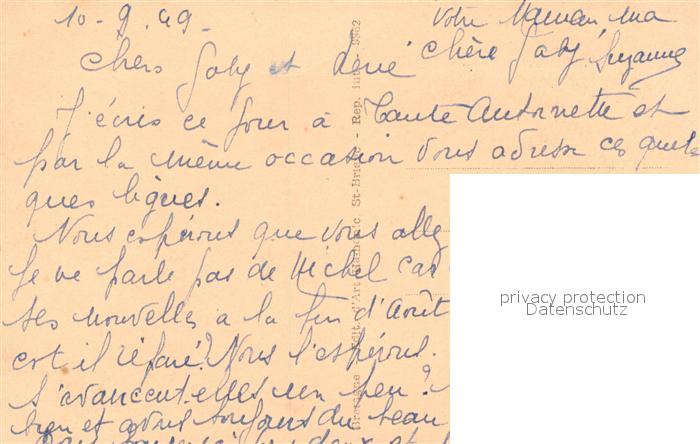 10-9-49.
votre Maman, ma
chère Gaby, Suzanne
Chers Gaby et René
J'écris ce jour à Tante Antoinette et
par la même occasion vous adresse ces quel-
ques lignes.
Nous espérons que vous alle
Je ne parle pas de Michel car
ses nouvelles à la fin d'Août
est il réparé? Nous l'espérons.
s'avancent elles un peu?
bien et avons toujours du beau
deux et
Bretagne Édit. d'Art St-Brieuc - Rep. int. - 9362
privacy protection
Datenschutz